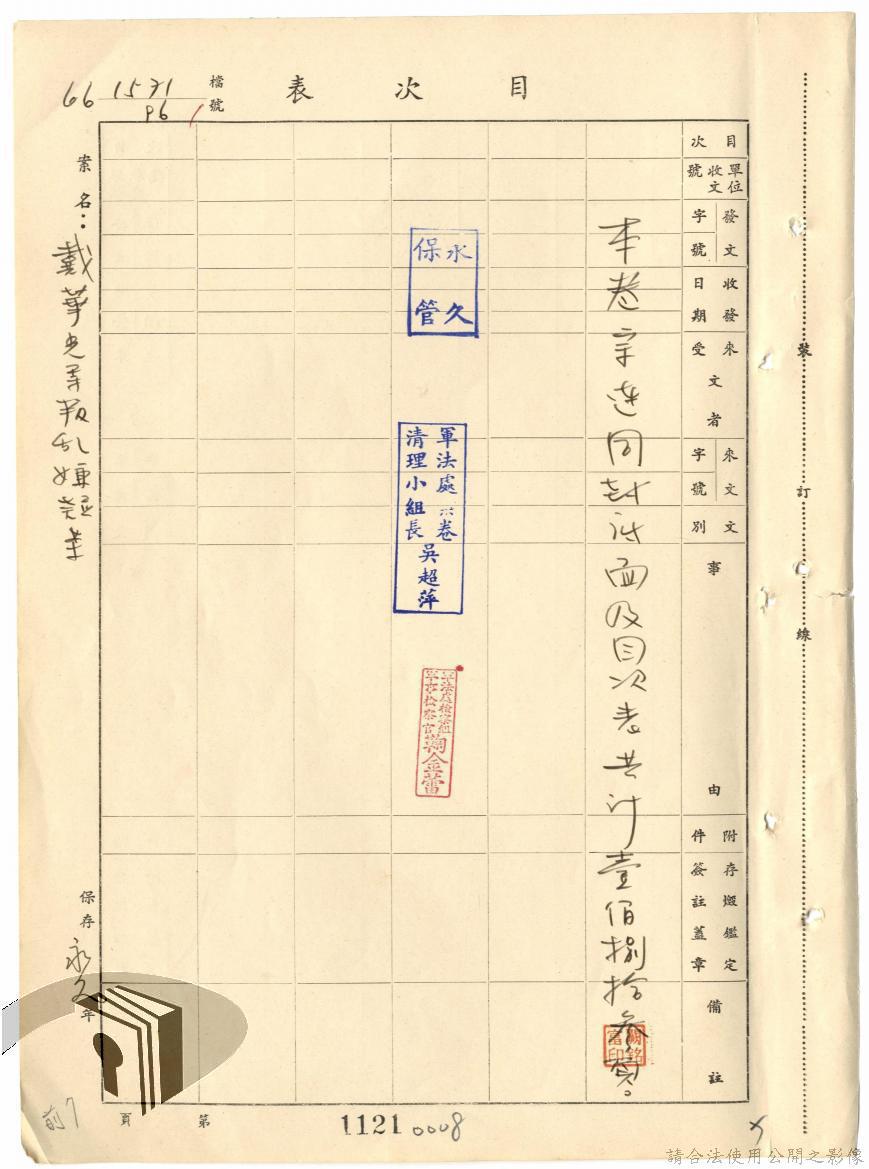 目次表
檔號
66 1571
96 1
案名：戴華光等叛乱嫌疑案
目次
單位收文號
發文字號
收發日期
來文受文者
來文字號
文別
事由
附件
存燬鑑定簽註蓋章
備註
本卷宗連同封底面及目次表共計壹佰捌拾參頁。
永久保管
軍法處檔卷
清理小組長吳超萍
金蕾
關銘富印
保存永久年
裝訂線
第頁
1121 0008
前7
請合法使用公開之影像